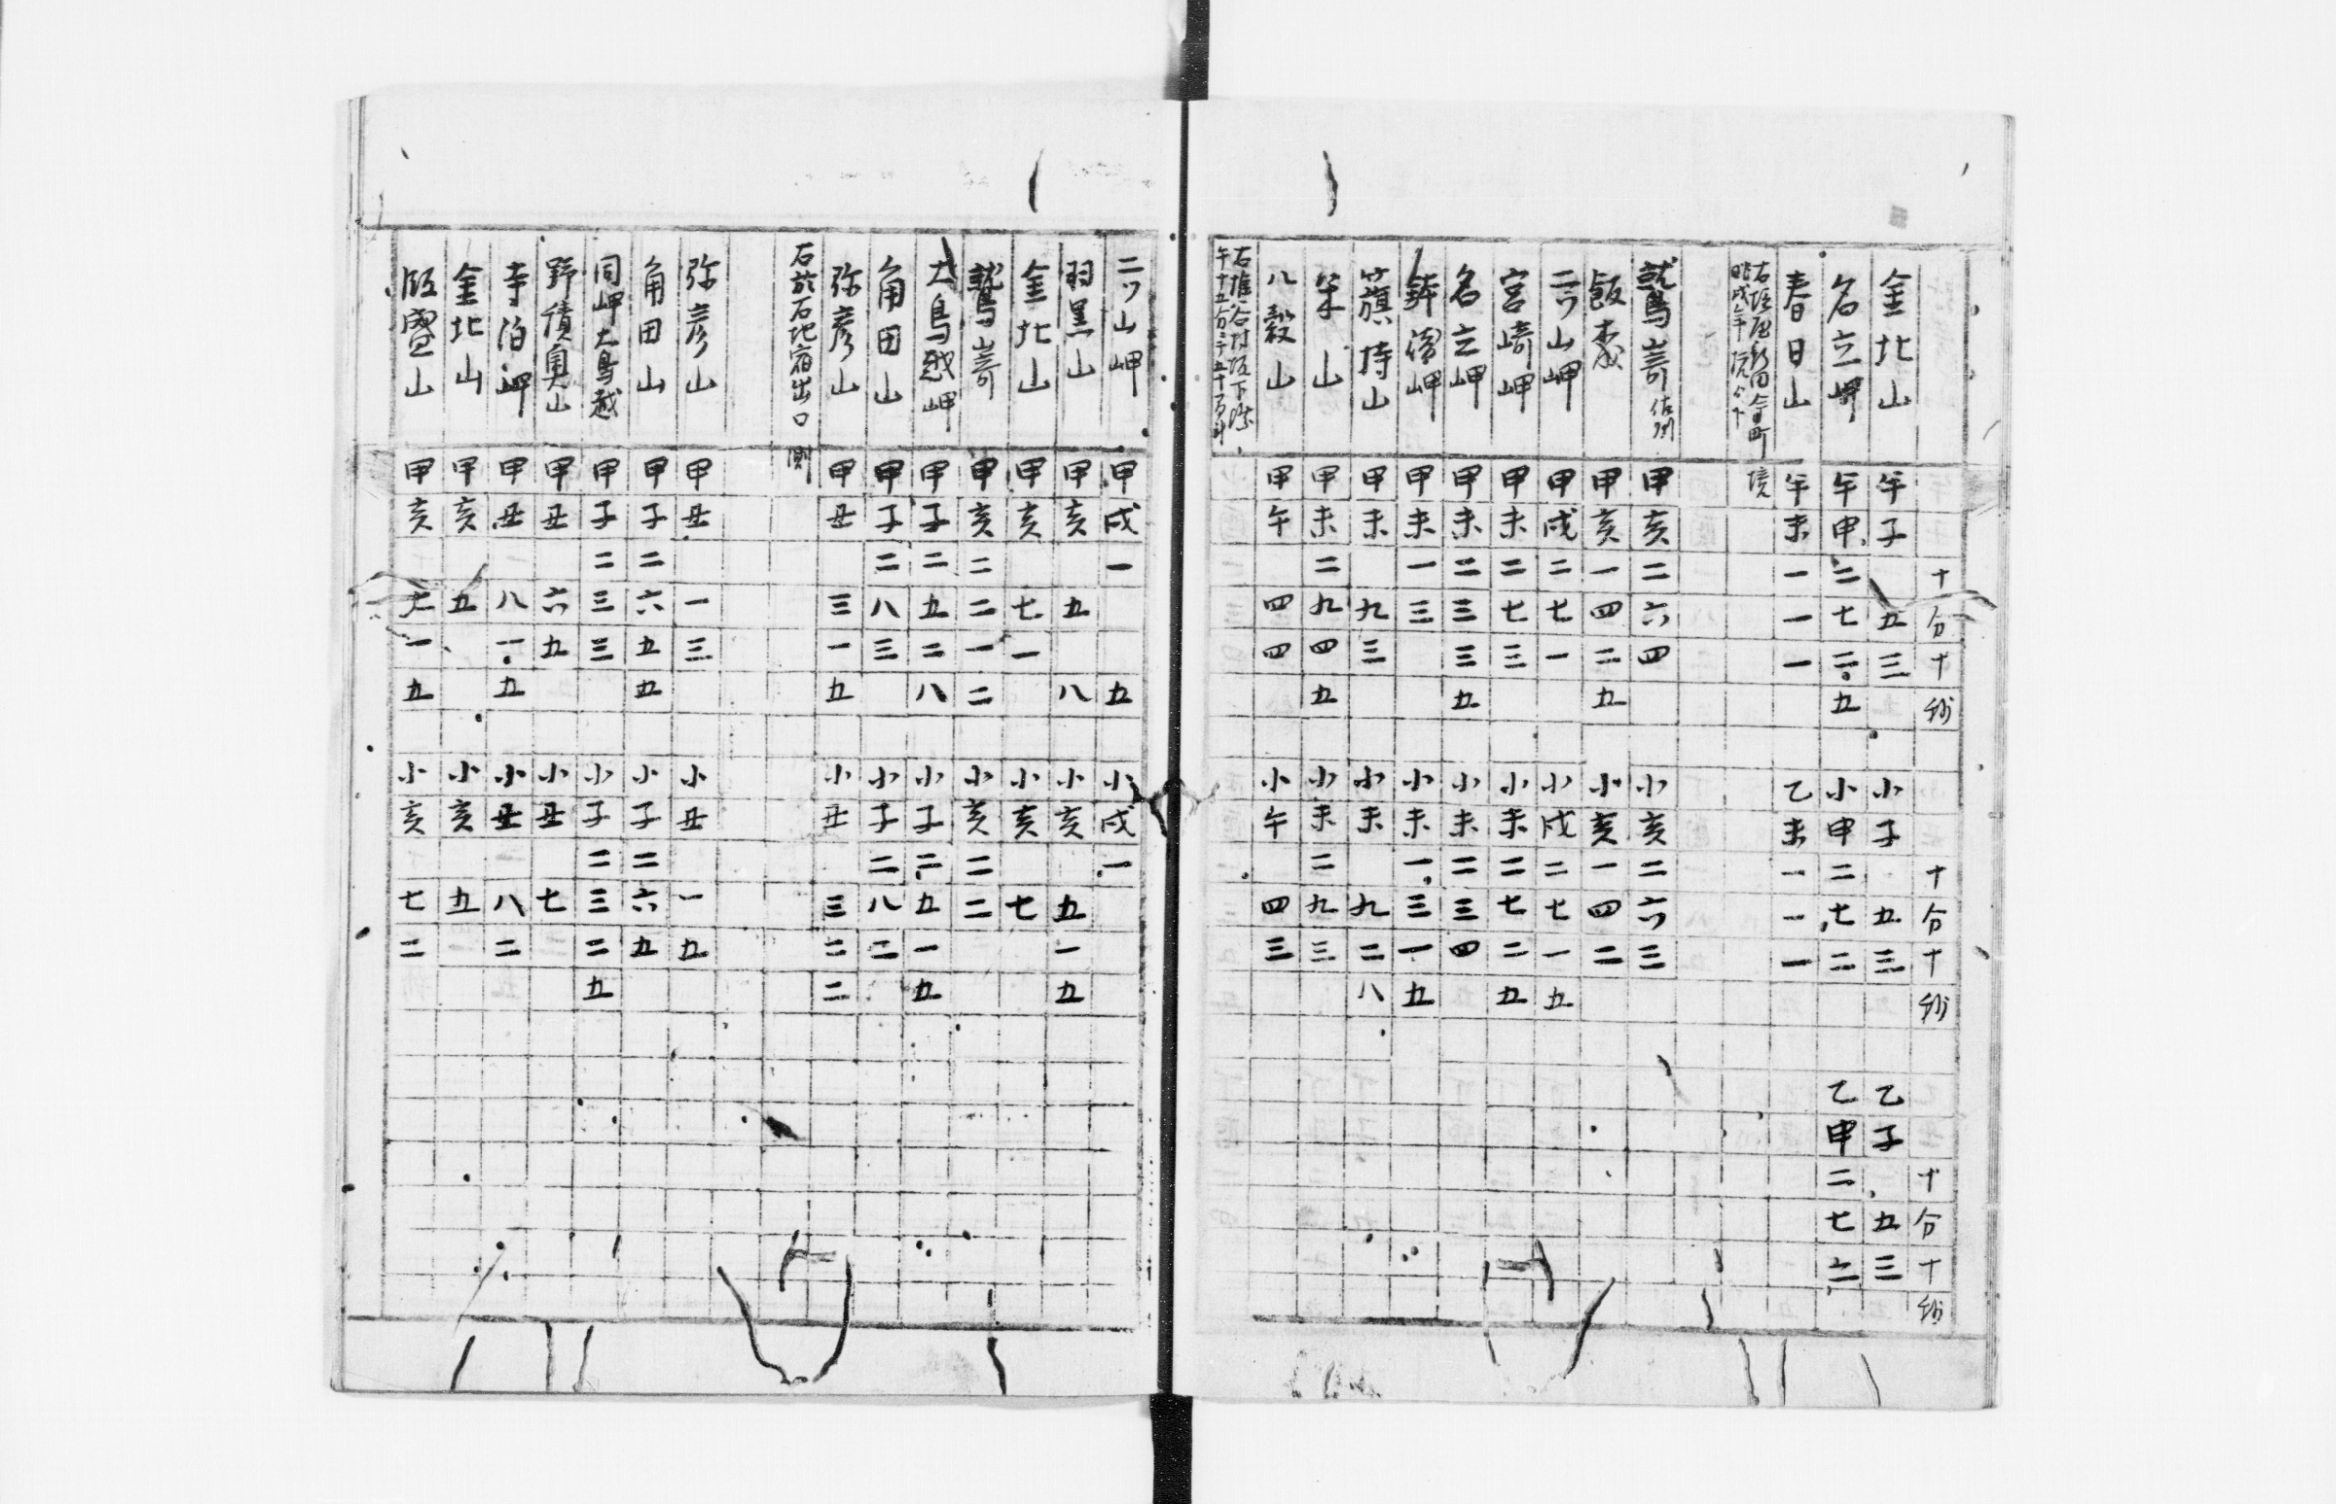 十分十秒 十分十秒 十分十秒
金北山 午子 五三 小子 五三 乙子 五三
名立岬 午申二七二五 小申二七二 乙申二七二
春日山 午未一一一 乙未一一一
鷲島嵜 佐州 甲亥二六四 小亥二六三
飯森 甲亥一四二五 小亥一四二
二ツ山岬 甲戌二七一 小戌二七一五
宮崎岬 甲未二七三 小未二七二五
名立岬 甲未二三三五 小未二三四
鉢崎岬 甲未一三 小未一三一五
籏持山 甲未 九三 小未 九二八
米山 甲未二九四五 小未二九三
八穀山 甲午 四四 小午 四三
右椎谷村坂下
午十五分
二ツ山岬 甲戌一 五 小戌一
羽黒山 甲亥 五 八 小亥 五一五
金北山 甲亥 七一 小亥 七
鷲嵜 甲亥二二一二 小亥二二
大鳥越岬 甲子二五二八 小子二五一五
角田山 甲子二八三 小子二八二
弥彦山 甲丑 三一五 小丑 三二二
右於石地宿出口 測
弥彦山 甲丑 一三 小丑 一五
角田山 甲子二六五五 小子二六五
同岬大鳥越 甲子二三三 小子二三二五
野積奥山 甲丑 六五 小丑 七
寺泊岬 甲丑 八一五 小丑 八二
金北山 甲亥 五 小亥 五
飯盛山 甲亥 七一五 小亥 七二